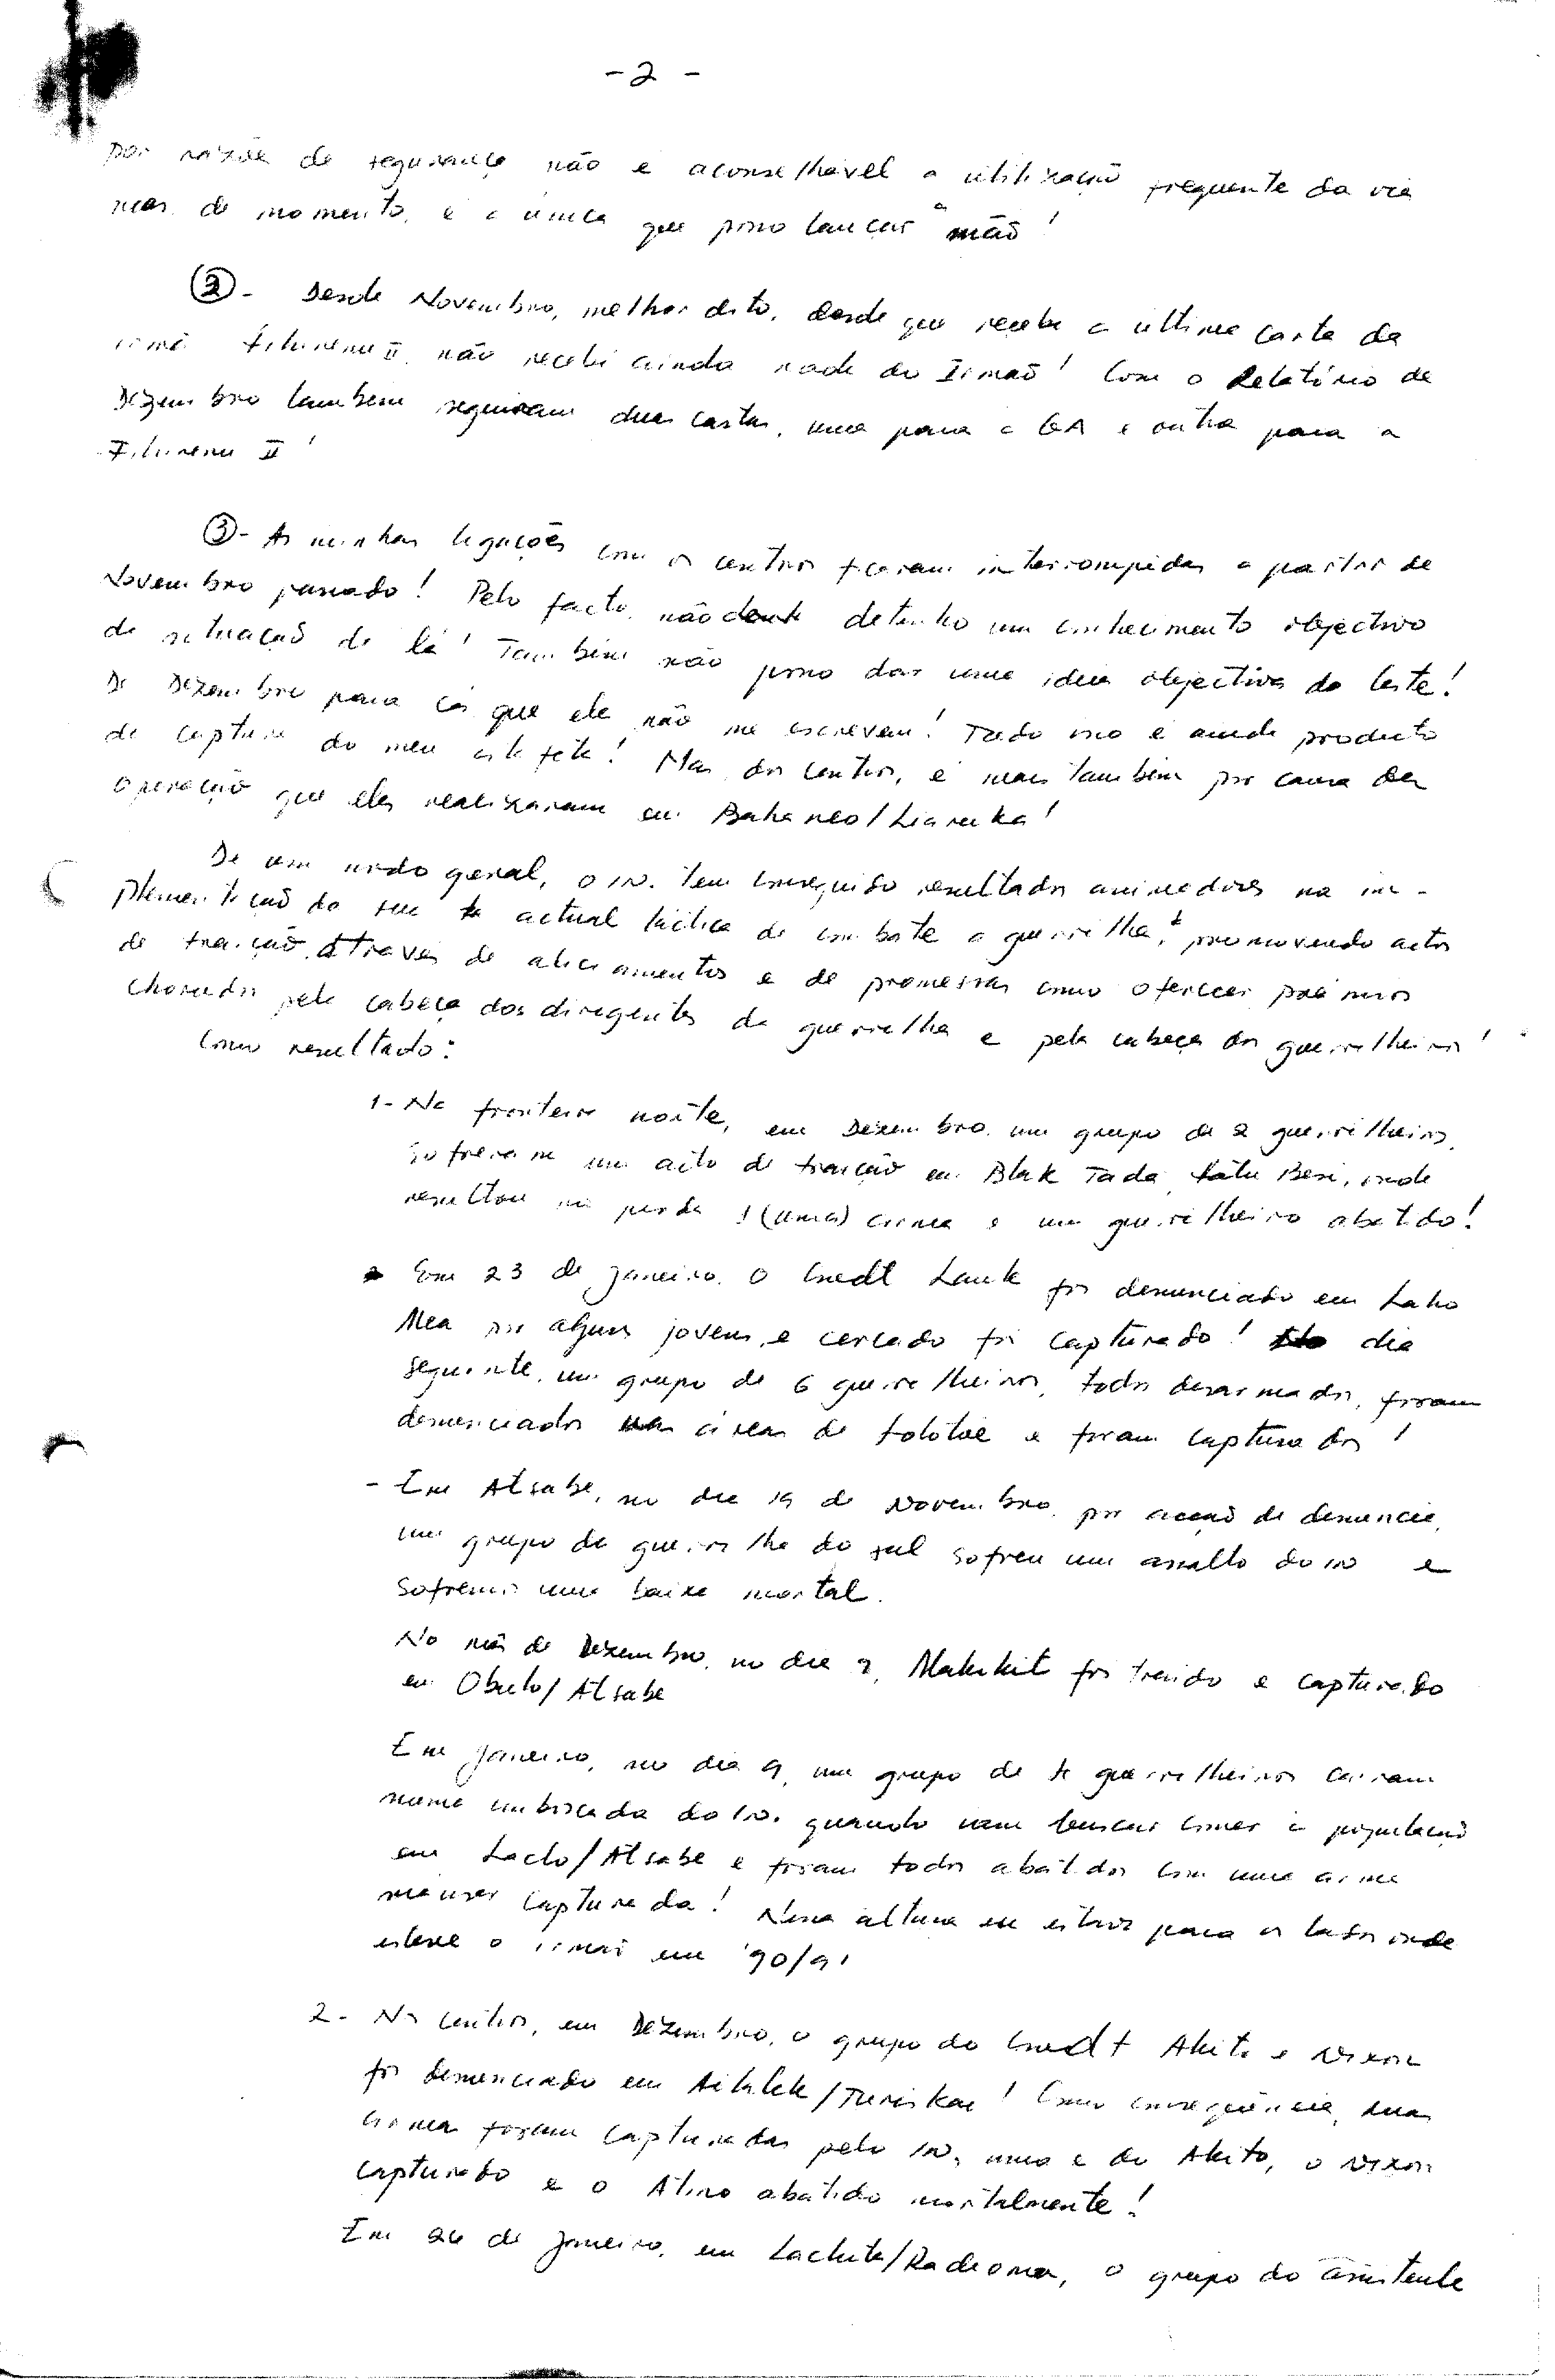 - 2 -
por razões de segurança não é aconselhável a utilização frequente da via
mas, de momento, é a única que posso lançar a mão!
② - Desde Novembro, melhor dito, desde que recebi a última carta da
irmã não recebi ainda nada do Irmão! Com o Relatório de
Dezembro também seguiram duas cartas, uma para a GA e outra para a
II!
③ - As minhas ligações com o centro ficaram interrompidas a partir de
Novembro passado! Pelo facto, não detenho um conhecimento objectivo
da situação de lá! Também não posso dar uma ideia objectiva do leste!
De Dezembro para cá que ele não me escreveu! Tudo isso é ainda producto
da captura do meu estafeta! Mas, do centro, é mais também por causa da
operação que eles realizaram em
De um modo geral, o in. tem conseguido resultados animadores na im-
plementação da sua actual táctica de combate a guerrilha, promovendo actos
de traição através de aliciamentos e de promessas como oferecer prémios
chorudos pela cabeça dos dirigentes da guerrilha e pela cabeça dos guerrilheiros!
Como resultado:
1 - Na fronteira norte, em Dezembro, um grupo de 2 guerrilheiros,
sofreram um acto de traição em Blak Tada, Fatu Besi, onde
resultou na perda 1 (uma) arma e um guerrilheiro abatido!
Em 23 de Janeiro, o Cmdt Lauk foi denunciado em
Mea por alguns jovens, e cercado foi capturado! No dia
seguinte, um grupo de 6 guerrilheiros, todos desarmados, foram
denunciados nas áreas de Fololae e foram capturados!
- Em Atsabe, no dia 19 de Novembro, por acção de denúncia,
um grupo da guerrilha do sul sofreu um assalto do in e
sofremos uma baixa mortal.
No mês de Dezembro, no dia 9, Makikit foi traído e capturado
em Obulo/Atsabe
Em Janeiro, no dia 9, um grupo de 4 guerrilheiros caíram
numa emboscada do in. quando iam buscar comer à população
em Laclo/Atsabe e foram todos abatidos com uma arma
mauser capturada! Nessa altura eu estava para os lados onde
esteve o irmão em '90/91
2 - No centro, em Dezembro, o grupo do Cmdt Akito e Nixon
foi denunciado em Aitalek/Turiskai! Como consequência, duas
armas foram capturadas pelo in, uma é do Akito, o Nixon
capturado e o Atino abatido mortalmente!
Em 26 de Janeiro, em o grupo do assistente